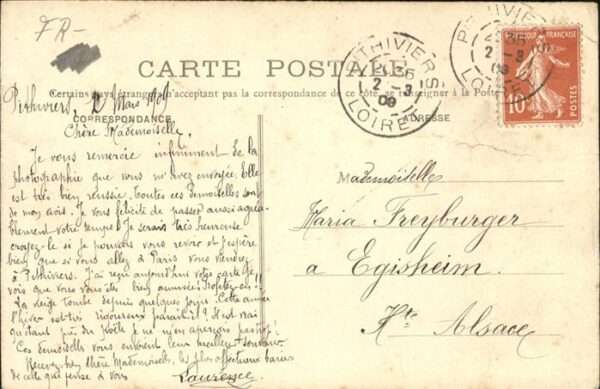 FR-
CARTE POSTALE
Certains pays étrangers n'acceptant pas la correspondance de ce côté, se renseigner à la Poste
CORRESPONDANCE
ADRESSE
PITHIVIERS
20 35
2 - 3
09
LOIRET
PITHIVIERS
20 35
2 - 3
09
LOIRET
REPUBLIQUE FRANÇAISE
10c
POSTES
Pithiviers, 2 Mars 1909
Chère Mademoiselle,
Je vous remercie infiniment de la
photographie que vous m'avez envoyée. Elle
est très bien réussie, toutes ces Demoiselles sont
de mon avis. Je vous félicite de passer aussi agréa-
blement votre temps! Je serais très heureuse
croyez-le si je pouvais vous revoir et j'espère
bien que si vous allez à Paris vous viendrez
à Pithiviers. J'ai reçu aujourd'hui votre carte. Je
vois que vous vous êtes bien amusée!
La neige tombe depuis quelques jours. Cette année
l'hiver est très rigoureux paraît-il? Il est vrai
qu'étant près du poêle je ne m'en aperçois pas trop!
Ces Demoiselles vous envoient leur meilleur souvenir.
Recevez chère Mademoiselle, les plus affectueux baisers
de celle qui pense à vous
Laurence
Mademoiselle
Maria Freyburger
à Egisheim.
Hte Alsace